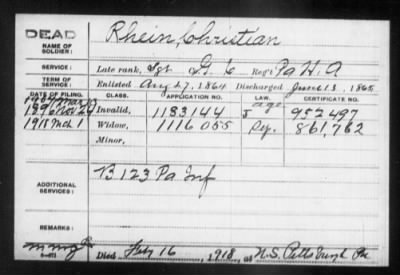 DEAD
NAME OF SOLDIER:
Rhein, Christian
SERVICE:
Late rank, Sgt G. 6 Reg't Pa H. A
TERM OF SERVICE:
Enlisted Aug 27, 1864 Discharged June 13, 1865
DATE OF FILING. CLASS. APPLICATION NO. LAW. CERTIFICATE NO.
1896 Nov 24 Invalid, 1183144 age 952497
1918 Mch 1 Widow, 1116055 Dep. 861,762
Minor,
ADDITIONAL SERVICES:
B 123 Pa Inf
REMARKS:
Died Feb 16, 1918, at N.S. Pittsburgh Pa